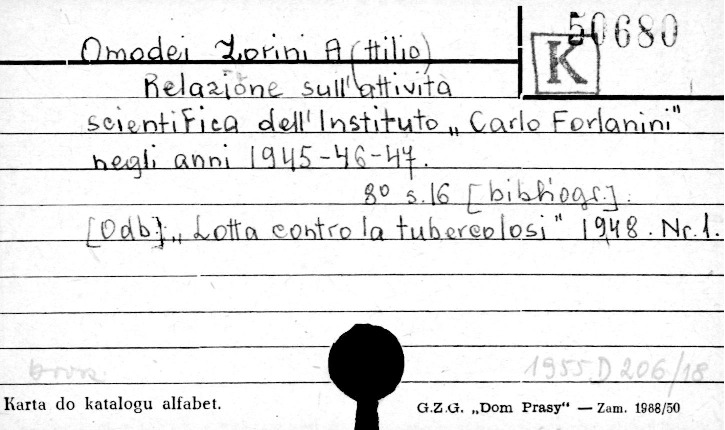 50680
K
Omodei Zorini A(ttilio)
Relazione sull'attività
scientifica dell'Instituto „Carlo Forlanini"
negli anni 1945-46-47.
8° s.16 [bibliogr.]
[Odb]: „Lotta contro la tubercolosi" 1948. Nr.1.
brosz.
1955 D 206/18
Karta do katalogu alfabet.
G.Z.G. „Dom Prasy“ — Zam. 1988/50